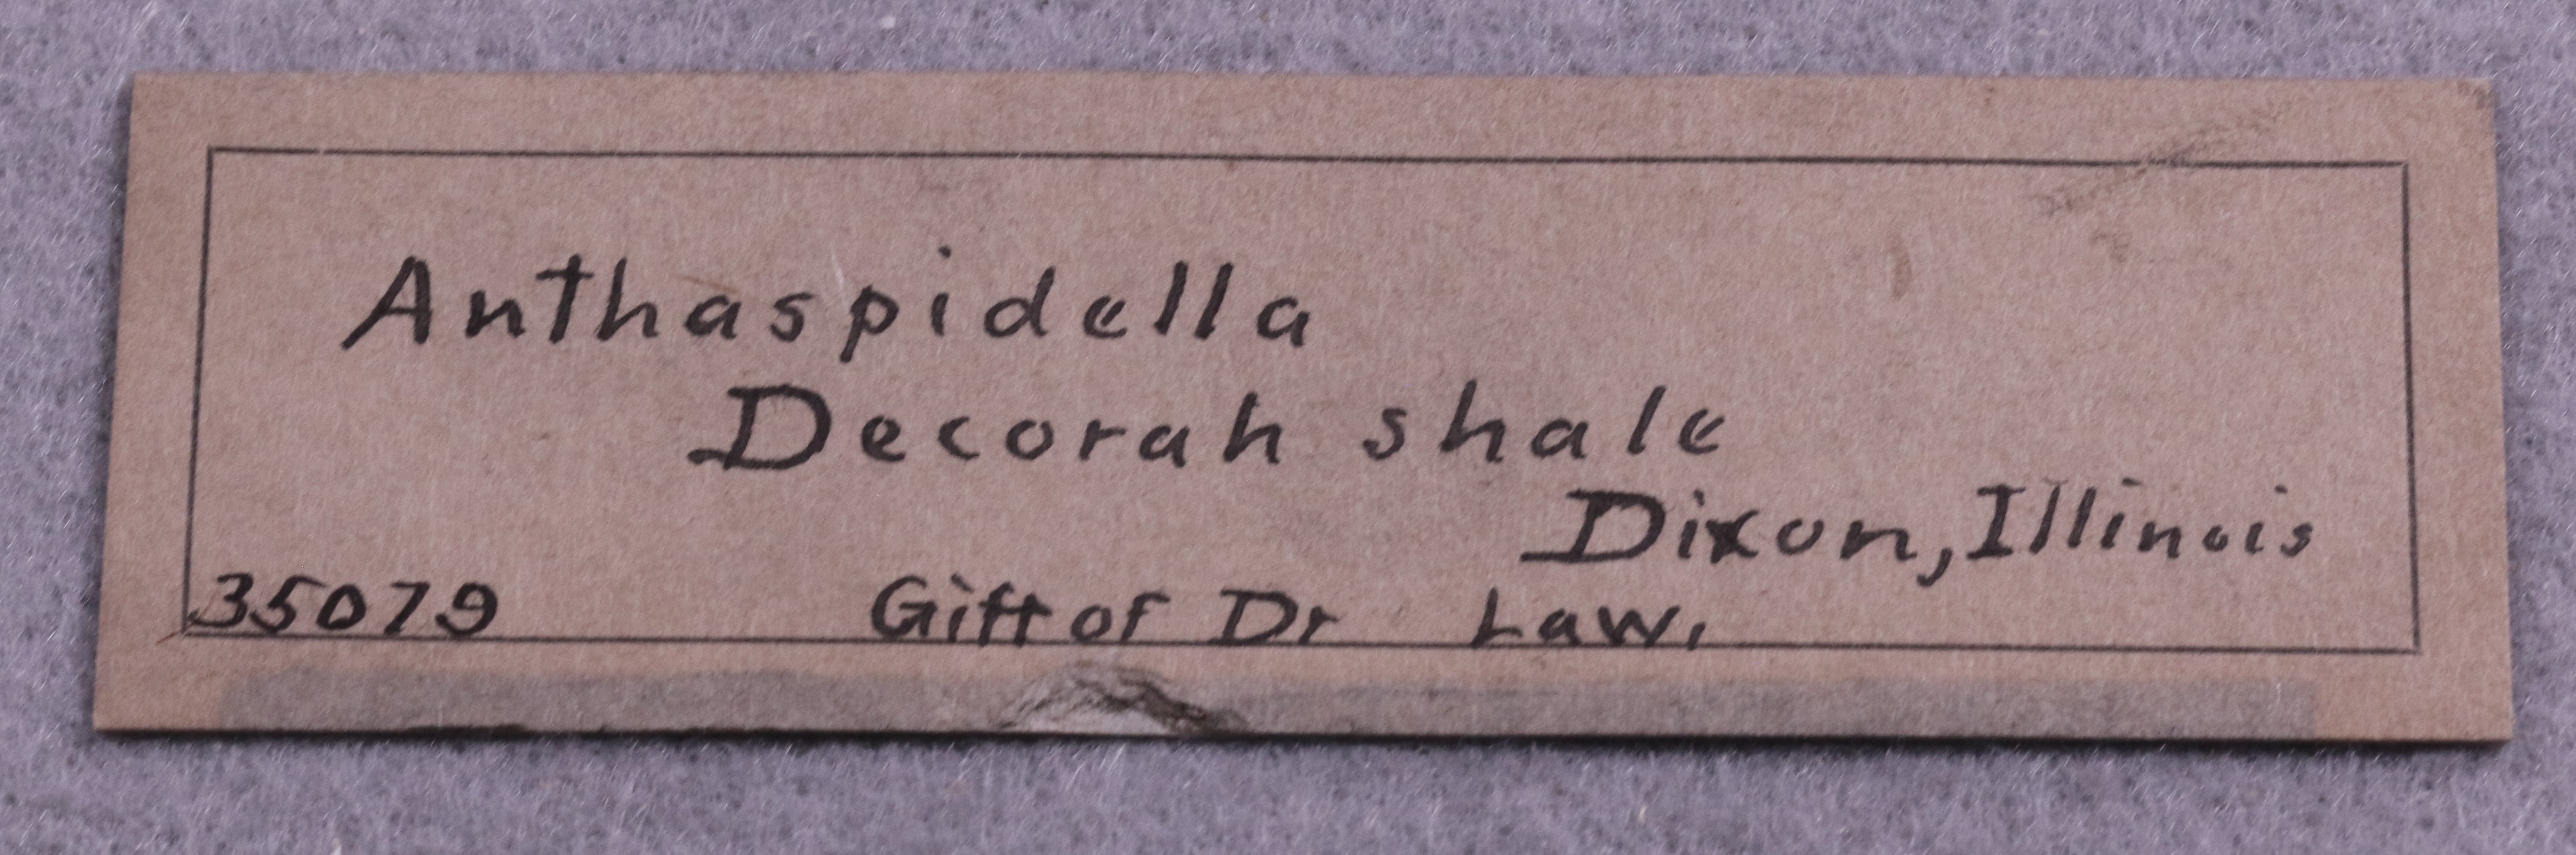 Anthaspidella
Decorah shale
Dixon, Illinois
35079 Gift of Dr Law.